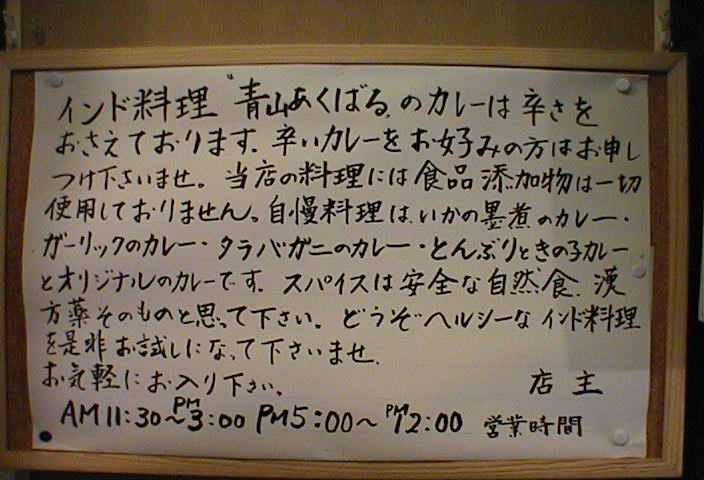 インド料理 "青山あくばる"のカレーは辛さを
おさえております。辛いカレーをお好みの方はお申し
つけ下さいませ。当店の料理には食品添加物は一切
使用しておりません。自慢料理は、いかの墨煮のカレー・
ガーリックのカレー・タラバガニのカレー・とんぶりときの子カレー
とオリジナルのカレーです。スパイスは安全な自然食、漢
方薬そのものと思って下さい。どうぞヘルシーなインド料理
を是非お試しになって下さいませ。
お気軽にお入り下さい。 店主
AM11:30〜PM3:00 PM5:00〜PM12:00 営業時間